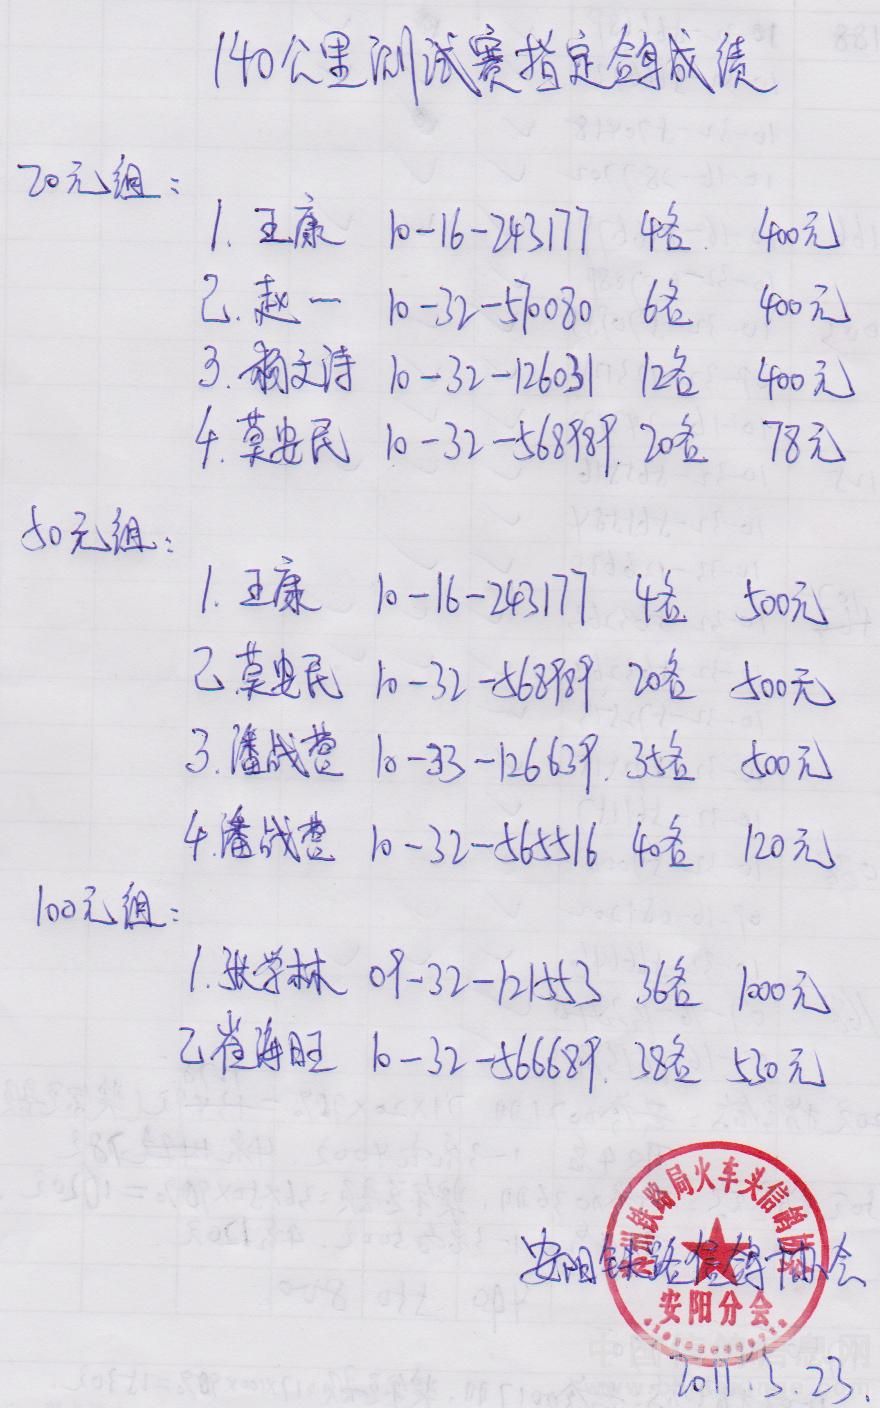 140公里测试赛指定鸽成绩
20元组：
1. 王康 10-16-243177 4名 400元
2. 赵一 10-32-570080 6名 400元
3. 杨文诗 10-32-126031 12名 400元
4. 莫安民 10-32-568989 20名 78元
50元组：
1. 王康 10-16-243177 4名 500元
2. 莫安民 10-32-568989 20名 500元
3. 潘战营 10-33-126639 35名 500元
4. 潘战营 10-32-565516 40名 120元
100元组：
1. 张学林 09-32-121553 36名 1000元
2 崔海旺 10-32-566689 38名 530元
州铁路局火车头信鸽协会
安阳铁路信鸽协会
安阳分会
2011.5.23.